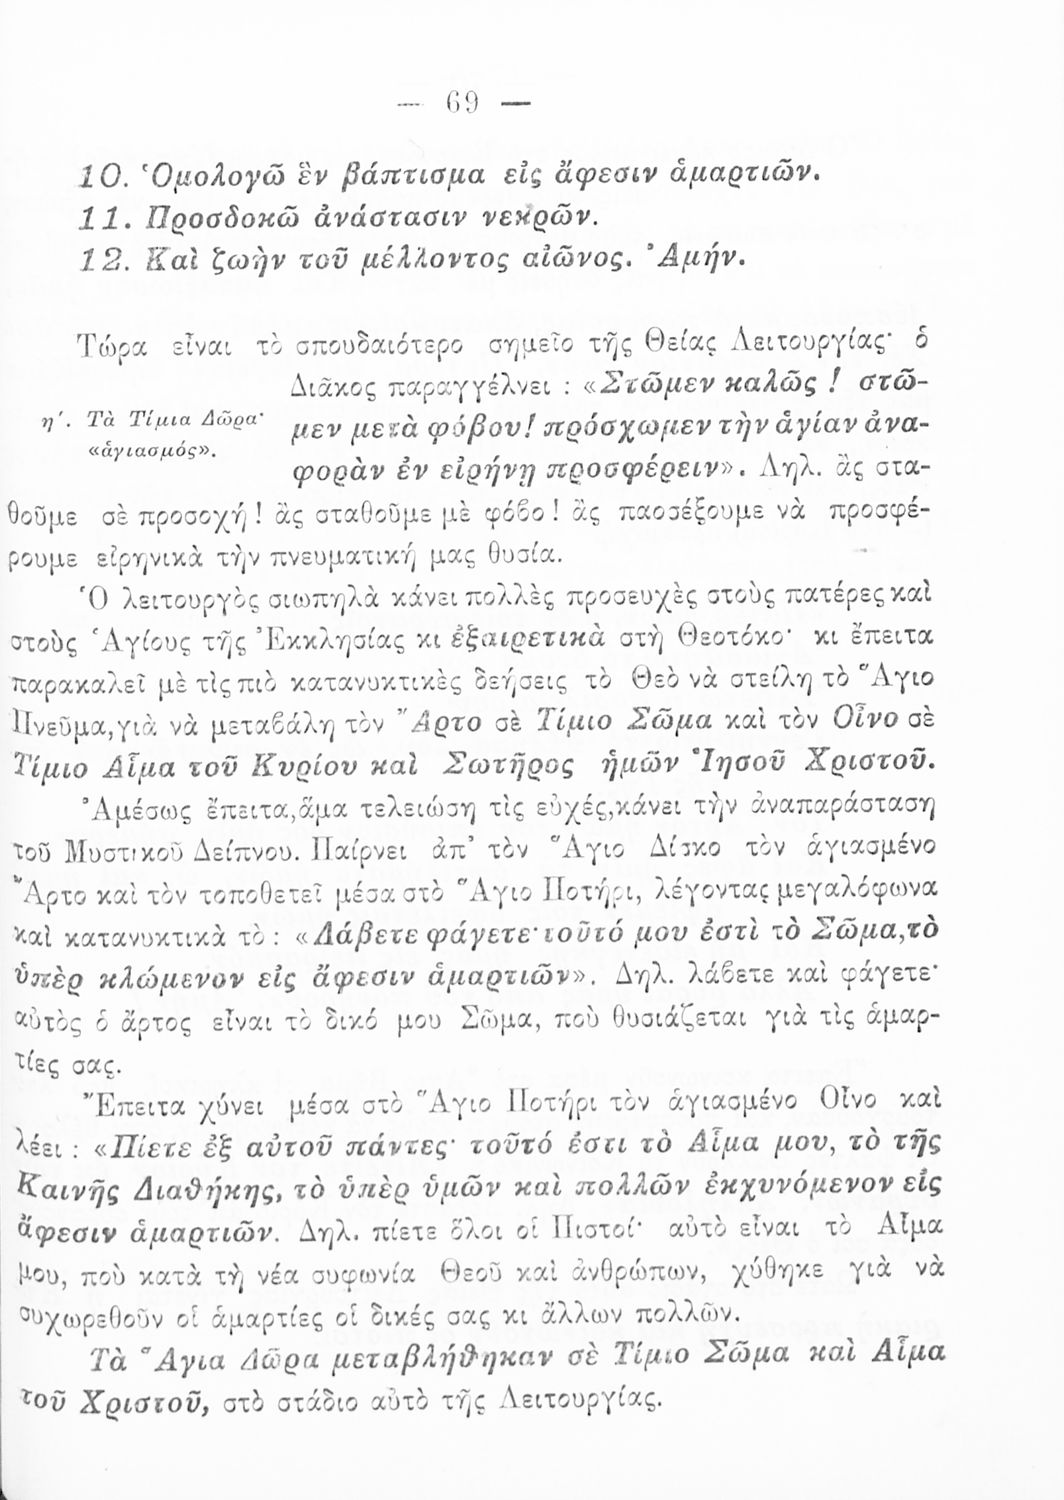 — 69 —
10. Ὁμολογῶ ἓν βάπτισμα εἰς ἄφεσιν ἁμαρτιῶν.
11. Προσδοκῶ ἀνάστασιν νεκρῶν.
12. Καὶ ζωὴν τοῦ μέλλοντος αἰῶνος. Ἀμήν.
Τώρα εἶναι τὸ σπουδαιότερο σημεῖο τῆς Θείας Λειτουργίας· ὁ
Διᾶκος παραγγέλνει : «Στῶμεν καλῶς ! στῶ-
η΄. Τὰ Τίμια Δῶρα·
«ἁγιασμός».
μεν μετὰ φόβου! πρόσχωμεν τὴν ἁγίαν ἀνα-
φορὰν ἐν εἰρήνῃ προσφέρειν». Δηλ. ἂς στα-
θοῦμε σὲ προσοχή ! ἂς σταθοῦμε μὲ φόβο ! ἂς παοσέξουμε νὰ προσφέ-
ρουμε εἰρηνικὰ τὴν πνευματική μας θυσία.
Ὁ λειτουργὸς σιωπηλὰ κάνει πολλὲς προσευχὲς στοὺς πατέρες καὶ
στοὺς Ἁγίους τῆς Ἐκκλησίας κι ἐξαιρετικὰ στὴ Θεοτόκο· κι ἔπειτα
παρακαλεῖ μὲ τὶς πιὸ κατανυκτικὲς δεήσεις τὸ Θεὸ νὰ στείλη τὸ Ἅγιο
Πνεῦμα, γιὰ νὰ μεταβάλη τὸν Ἄρτο σὲ Τίμιο Σῶμα καὶ τὸν Οἶνο σὲ
Τίμιο Αἷμα τοῦ Κυρίου καὶ Σωτῆρος ἡμῶν Ἰησοῦ Χριστοῦ.
Ἀμέσως ἔπειτα, ἅμα τελειώση τὶς εὐχές, κάνει τὴν ἀναπαράσταση
τοῦ Μυστικοῦ Δείπνου. Παίρνει ἀπ’ τὸν Ἅγιο Δίσκο τὸν ἁγιασμένο
Ἄρτο καὶ τὸν τοποθετεῖ μέσα στὸ Ἅγιο Ποτήρι, λέγοντας μεγαλόφωνα
καὶ κατανυκτικὰ τὸ : «Λάβετε φάγετε· τοῦτό μου ἐστὶ τὸ Σῶμα, τὸ
ὑπὲρ κλώμενον εἰς ἄφεσιν ἁμαρτιῶν». Δηλ. λάβετε καὶ φάγετε·
αὐτὸς ὁ ἄρτος εἶναι τὸ δικό μου Σῶμα, ποὺ θυσιάζεται γιὰ τὶς ἁμαρ-
τίες σας.
Ἔπειτα χύνει μέσα στὸ Ἅγιο Ποτήρι τὸν ἁγιασμένο Οἶνο καὶ
λέει : «Πίετε ἐξ αὐτοῦ πάντες· τοῦτό ἐστι τὸ Αἷμα μου, τὸ τῆς
Καινῆς Διαθήκης, τὸ ὑπὲρ ὑμῶν καὶ πολλῶν ἐκχυνόμενον εἰς
ἄφεσιν ἁμαρτιῶν. Δηλ. πίετε ὅλοι οἱ Πιστοί· αὐτὸ εἶναι τὸ Αἷμα
μου, ποὺ κατὰ τὴ νέα συφωνία Θεοῦ καὶ ἀνθρώπων, χύθηκε γιὰ νὰ
συχωρεθοῦν οἱ ἁμαρτίες οἱ δικές σας κι ἄλλων πολλῶν.
Τὰ Ἅγια Δῶρα μεταβλήθηκαν σὲ Τίμιο Σῶμα καὶ Αἷμα
τοῦ Χριστοῦ, στὸ στάδιο αὐτὸ τῆς Λειτουργίας.